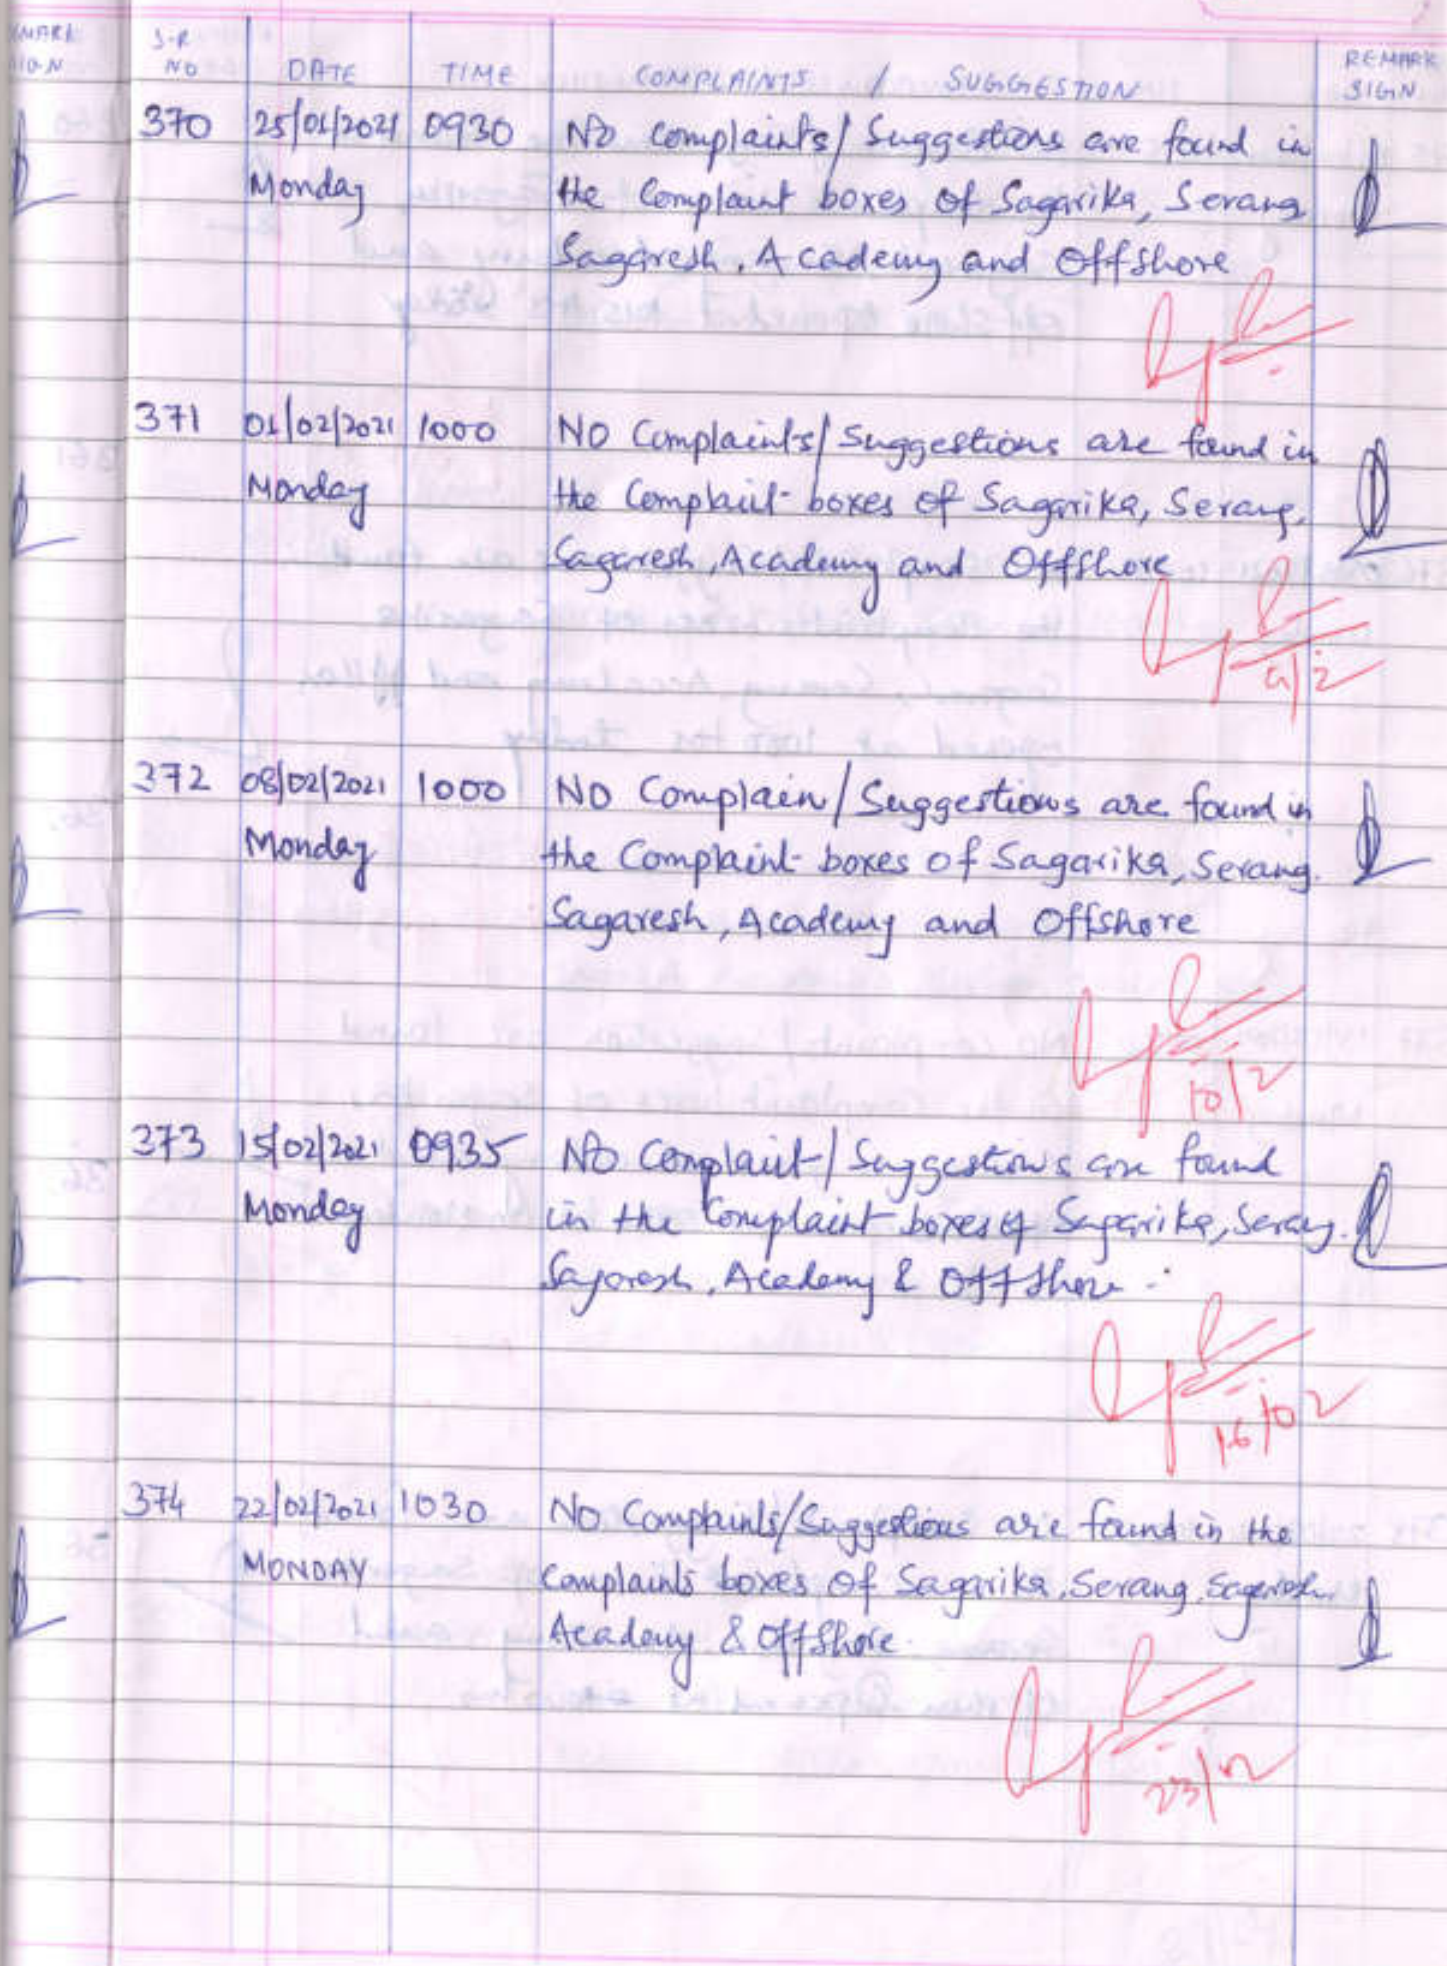 S.R NO DATE TIME COMPLAINTS / SUGGESTION REMARK SIGN
370 25/01/2021 0930 NO Complaints/Suggestions are found in
Monday the Complaint boxes of Sagarika, Serang
Sagaresh, Academy and Offshore
371 01/02/2021 1000 NO Complaints/Suggestions are found in
Monday the Complaint boxes of Sagarika, Serang,
Sagaresh, Academy and Offshore
372 08/02/2021 1000 NO Complain/Suggestions are found in
Monday the Complaint boxes of Sagarika, Serang.
Sagaresh, Academy and Offshore
10/2
373 15/02/2021 0935 NO Complaint/Suggestions are found
Monday in the Complaint boxes of Sagarika, Serang.
Sagaresh, Academy & Offshore.
16/02
374 22/02/2021 1030 NO Complaints/Suggestions are found in the
MONDAY Complaints boxes of Sagarika, Serang, Sagaresh,
Academy & Offshore.